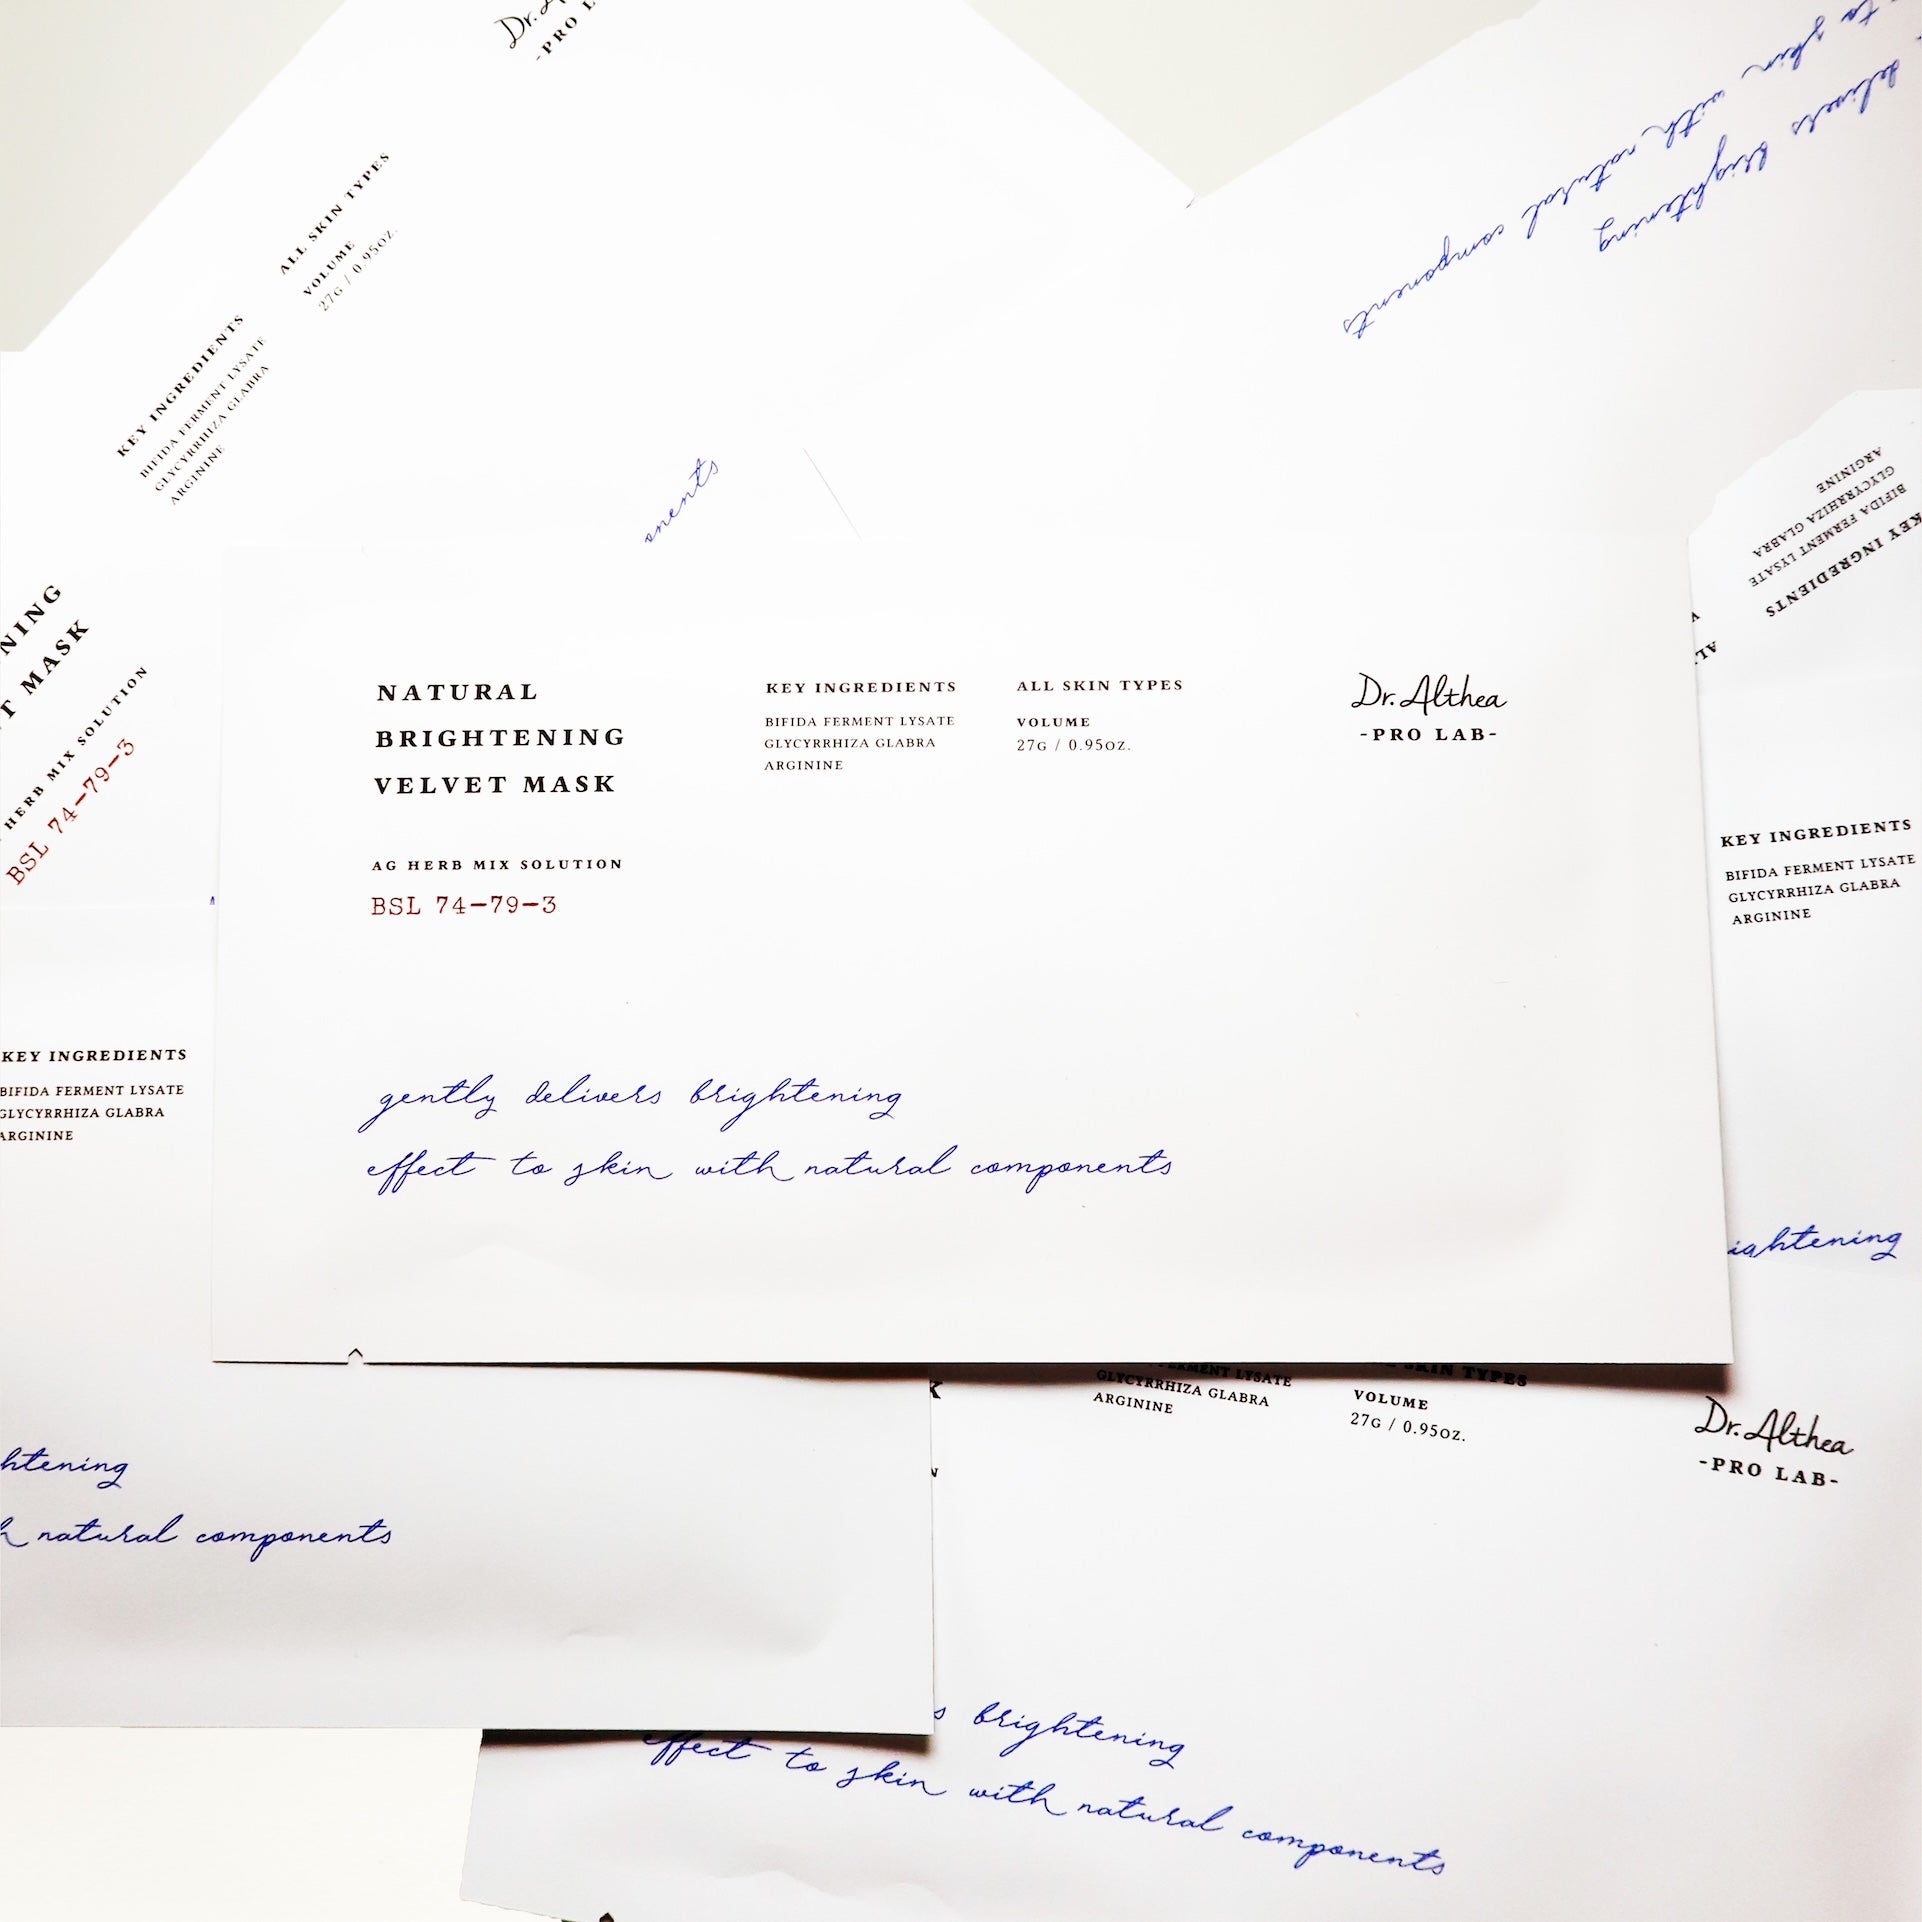 Dr. A
-PRO L
ALL SKIN TYPES
VOLUME
27G / 0.95OZ.
KEY INGREDIENTS
BIFIDA FERMENT LYSATE
GLYCYRRHIZA GLABRA
ARGININE
onents
NING
T MASK
HERB MIX SOLUTION
BSL 74-79-3
delivers brightening
to skin with natural components
KEY INGREDIENTS
BIFIDA FERMENT LYSATE
GLYCYRRHIZA GLABRA
ARGININE
NATURAL
BRIGHTENING
VELVET MASK
AG HERB MIX SOLUTION
BSL 74-79-3
KEY INGREDIENTS
BIFIDA FERMENT LYSATE
GLYCYRRHIZA GLABRA
ARGININE
ALL SKIN TYPES
VOLUME
27G / 0.95OZ.
Dr. Althea
-PRO LAB-
gently delivers brightening
effect to skin with natural components
KEY INGREDIENTS
BIFIDA FERMENT LYSATE
GLYCYRRHIZA GLABRA
ARGININE
ightening
KEY INGREDIENTS
BIFIDA FERMENT LYSATE
GLYCYRRHIZA GLABRA
ARGININE
htening
h natural components
FERMENT LYSATE
GLYCYRRHIZA GLABRA
ARGININE
SKIN TYPES
VOLUME
27G / 0.95OZ.
Dr. Althea
-PRO LAB-
s brightening
effect to skin with natural components